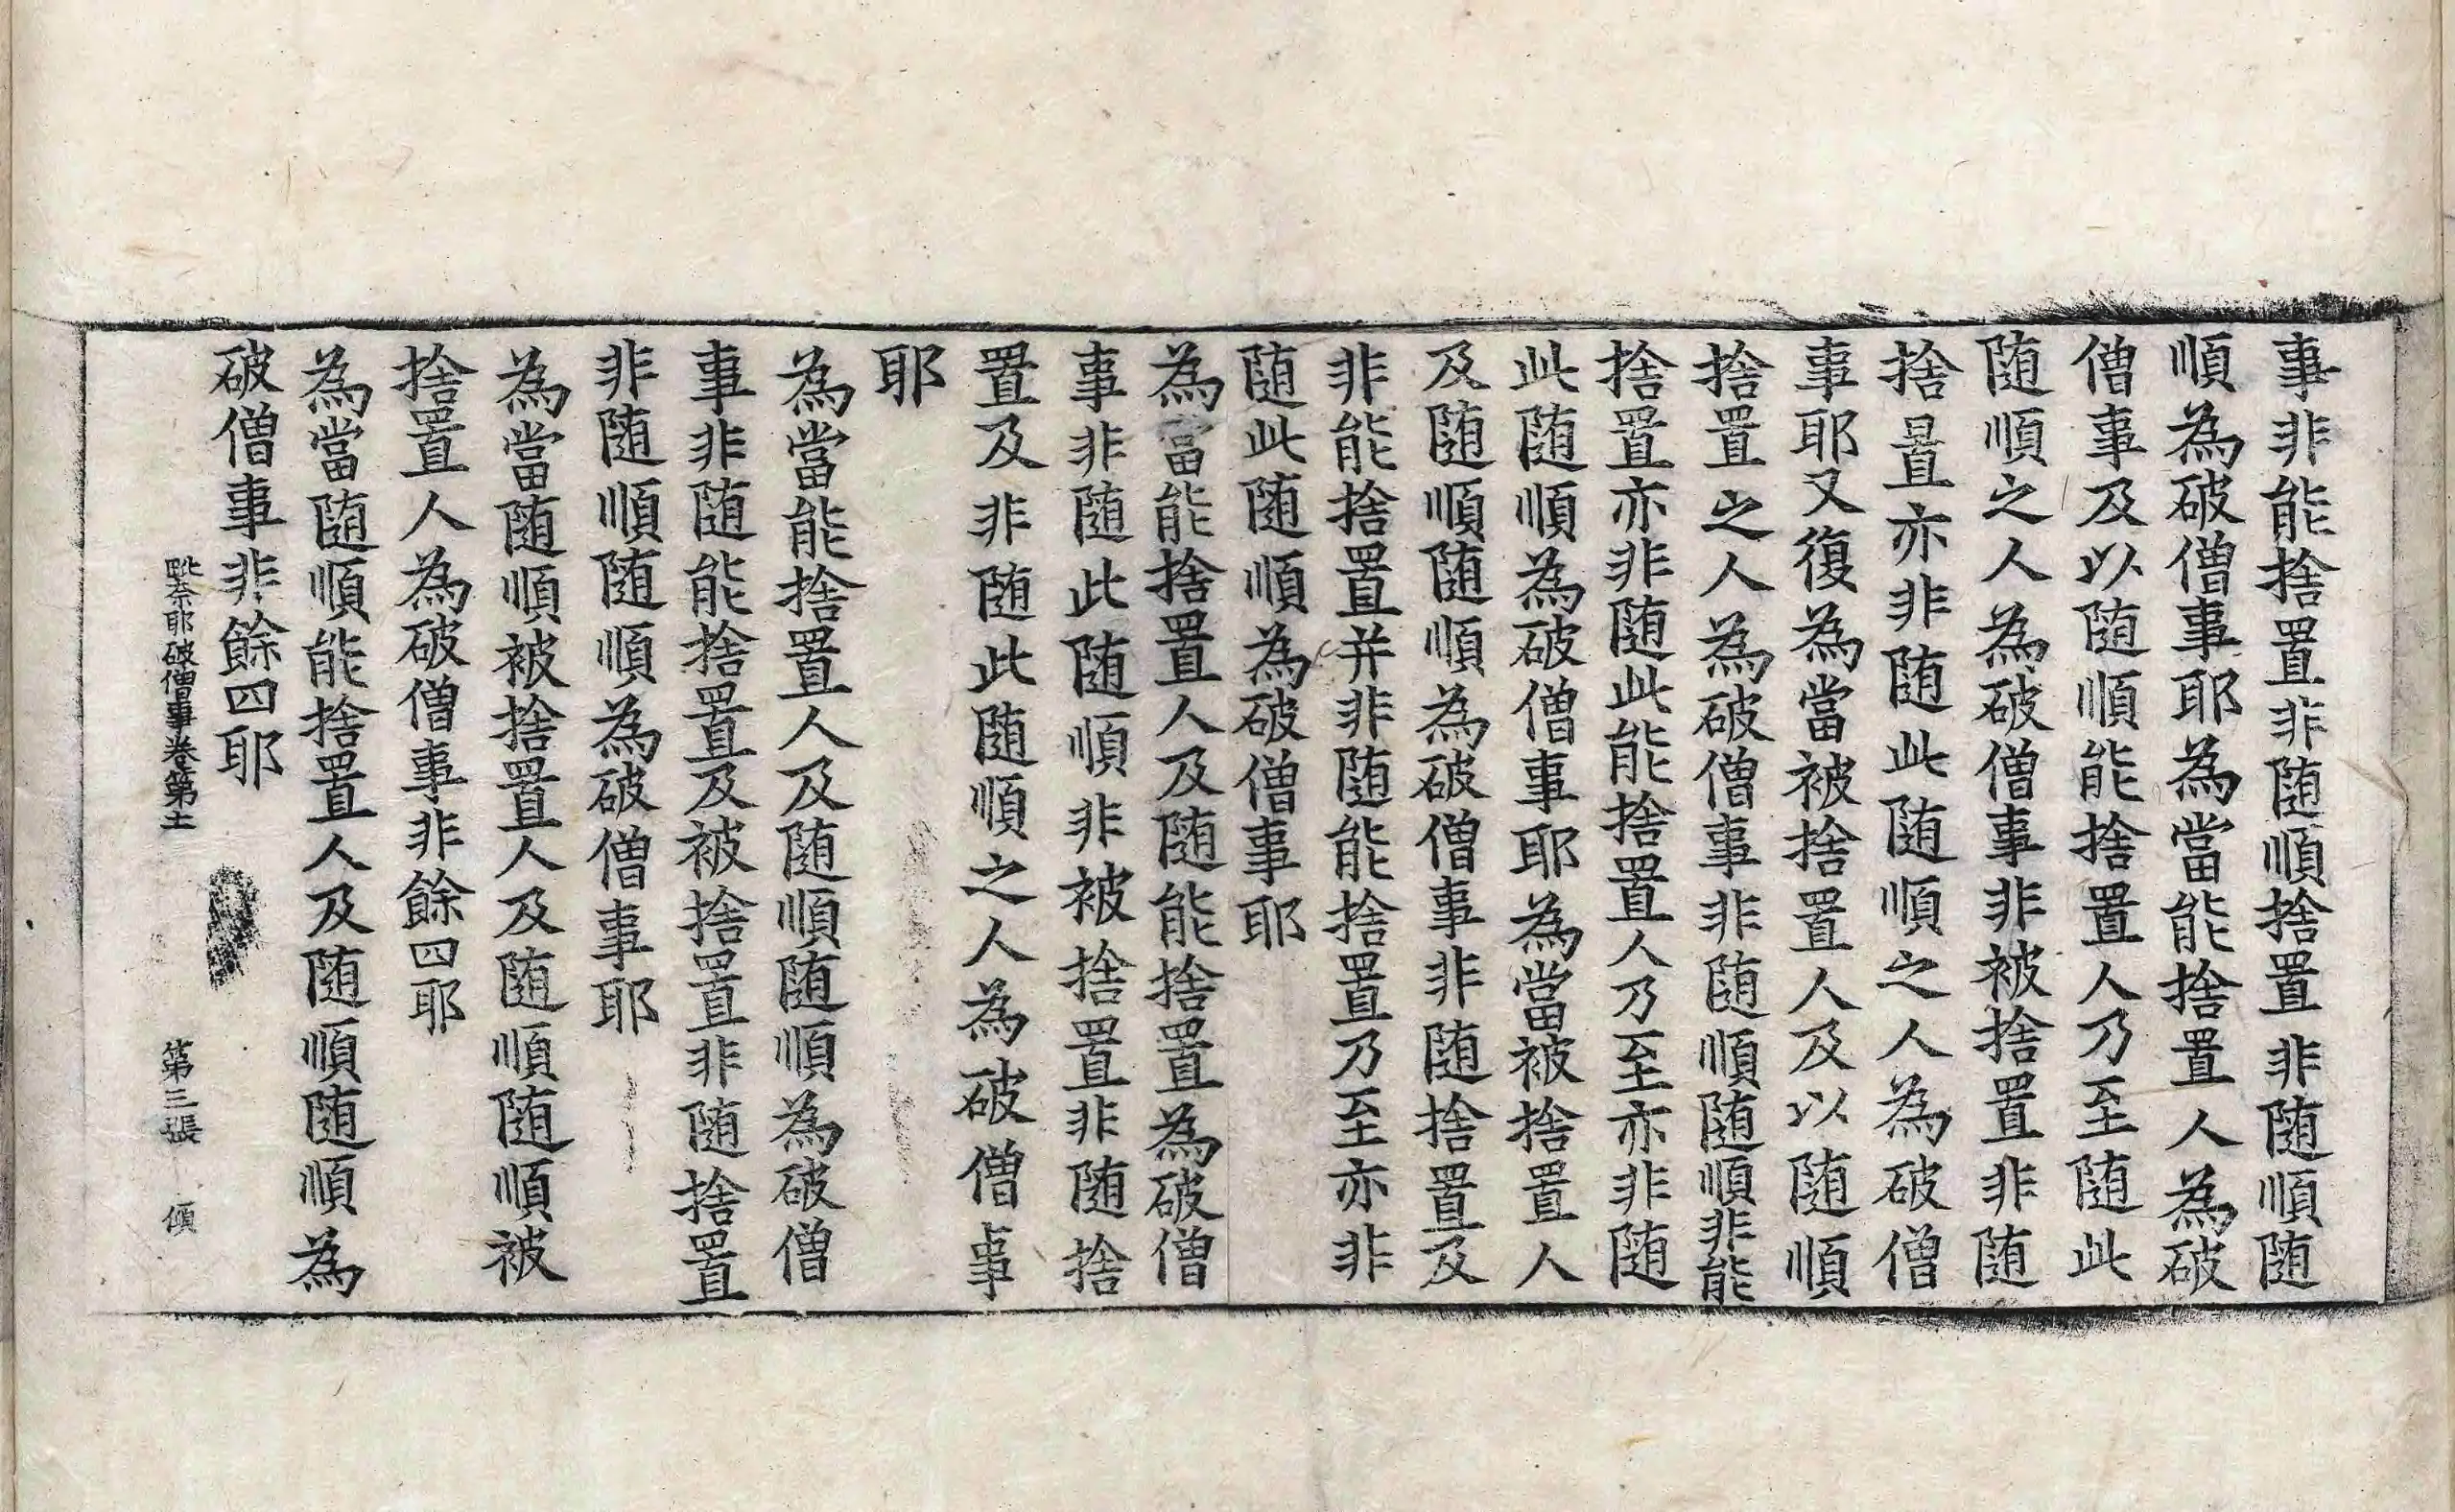 事非能捨置非随順捨置非随順随
順為破僧事耶為當能捨置人為破
僧事及以随順能捨置人乃至随此
随順之人為破僧事非被捨置非随
捨置亦非随此随順之人為破僧
事耶又復為當被捨置人及以随順
捨置之人為破僧事非随順随順非能
捨置亦非随此能捨置人乃至亦非随
此随順為破僧事耶為當被捨置人
及随順随順為破僧事非随捨置及
非能捨置并非随能捨置乃至亦非
随此随順為破僧事耶
為當能捨置人及随能捨置為破僧
事非随此随順非被捨置非随捨
置及非随此随順之人為破僧事
耶
為當能捨置人及随順随順為破僧
事非随能捨置及被捨置非随捨置
非随順随順為破僧事耶
為當随順被捨置人及随順随順被
捨置人為破僧事非餘四耶
為當随順能捨置人及随順随順為
破僧事非餘四耶
毗奈耶破僧事卷第十一 第三張 傾